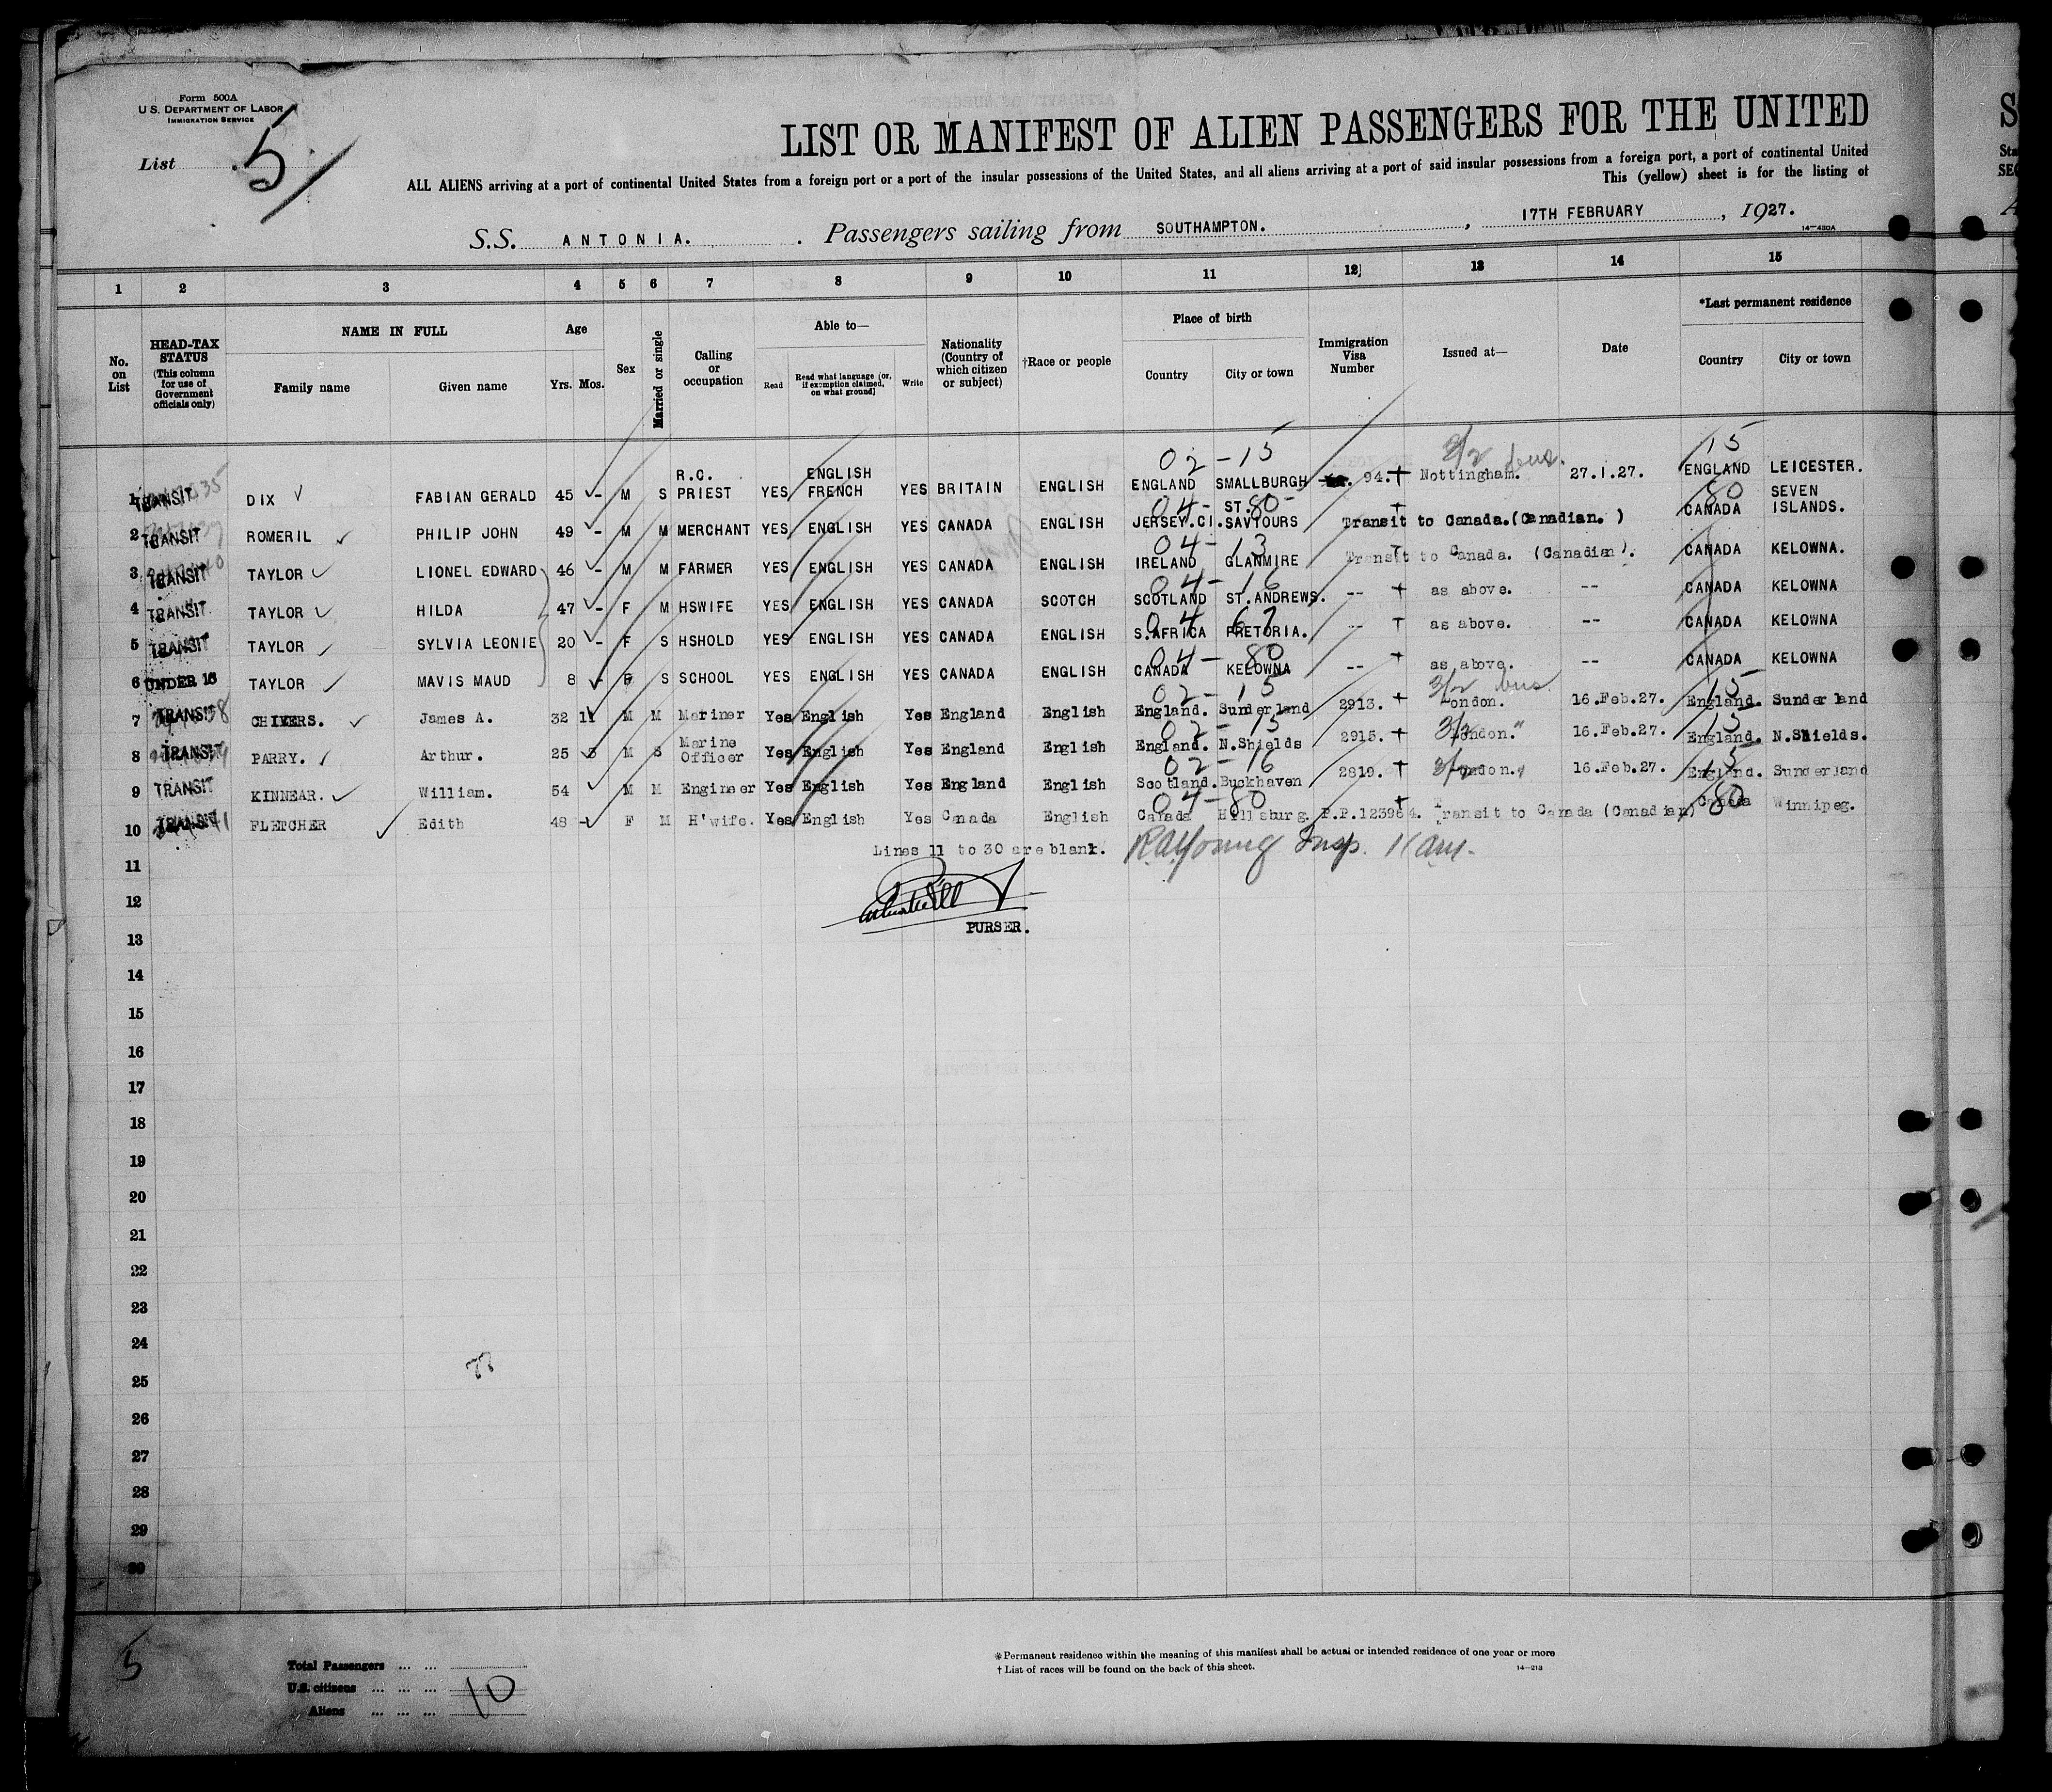 Form 500A
U.S. DEPARTMENT OF LABOR
IMMIGRATION SERVICE
List 5
LIST OR MANIFEST OF ALIEN PASSENGERS FOR THE UNITED
ALL ALIENS arriving at a port of continental United States from a foreign port or a port of the insular possessions of the United States, and all aliens arriving at a port of said insular possessions from a foreign port, a port of continental United
This (yellow) sheet is for the listing of
S.S. ANTONIA. Passengers sailing from SOUTHAMPTON. , 17TH FEBRUARY , 1927.
14-430A
1 2 3 4 5 6 7 8 9 10 11 12 13 14 15
No. on List
HEAD-TAX STATUS (This column for use of Government officials only)
NAME IN FULL
Family name Given name
Age
Yrs. Mos.
Sex
Married or single
Calling or occupation
Able to—
Read Read what language [or, if exemption claimed, on what ground] Write
Nationality (Country of which citizen or subject)
†Race or people
Place of birth
Country City or town
Immigration Visa Number
Issued at—
Date
*Last permanent residence
Country City or town
02 - 15 3/2 bus. 15
1 TRANSIT DIX FABIAN GERALD 45 - M S R.C. PRIEST YES ENGLISH FRENCH YES BRITAIN ENGLISH ENGLAND SMALLBURGH 94. Nottingham. 27.1.27. ENGLAND LEICESTER.
04 - 80 80
2 TRANSIT ROMERIL PHILIP JOHN 49 - M M MERCHANT YES ENGLISH YES CANADA ENGLISH JERSEY.CI. ST. SAVIOURS Transit to Canada.(Canadian.) CANADA SEVEN ISLANDS.
04 - 13
3 TRANSIT TAYLOR LIONEL EDWARD 46 - M M FARMER YES ENGLISH YES CANADA ENGLISH IRELAND GLANMIRE Transit to Canada. (Canadian). CANADA KELOWNA.
04 - 16
4 TRANSIT TAYLOR HILDA 47 - F M HSWIFE YES ENGLISH YES CANADA SCOTCH SCOTLAND ST.ANDREWS. -- as above. -- CANADA KELOWNA
04 67
5 TRANSIT TAYLOR SYLVIA LEONIE 20 - F S HSHOLD YES ENGLISH YES CANADA ENGLISH S.AFRICA PRETORIA. -- as above. -- CANADA KELOWNA
04 - 80
6 UNDER 16 TAYLOR MAVIS MAUD 8 - F S SCHOOL YES ENGLISH YES CANADA ENGLISH CANADA KELOWNA -- as above. -- CANADA KELOWNA
02 - 15 3/2 bus. 15
7 TRANSIT CHIVERS. James A. 32 11 M M Mariner Yes English Yes England English England. Sunderland 2913. London. 16.Feb.27. England. Sunderland
02 - 15 3/2 " 15
8 TRANSIT PARRY. Arthur. 25 3 M S Marine Officer Yes English Yes England English England. N.Shields 2915. London. 16.Feb.27. England. N.Shields.
02 - 16 3/2 15
9 TRANSIT KINNEAR. William. 54 M M Engineer Yes English Yes England English Scotland. Buckhaven 2819. London. 16.Feb.27. England. Sunderland
04 - 80 80
10 TRANSIT FLETCHER Edith 48 - F M H'wife. Yes English Yes Canada English Canada Hillsburg P.P.123984. Transit to Canada (Canadian) Canada Winnipeg.
Lines 11 to 30 are blank. R.A. Young Insp.
11
12
PURSER.
13
14
15
16
17
18
19
20
21
22
23
24
25
26
27
28
29
30
5
Total Passengers ... ...
U.S. citizens ... ... ... 10
Aliens ... ... ...
*Permanent residence within the meaning of this manifest shall be actual or intended residence of one year or more
†List of races will be found on the back of this sheet. 14-213